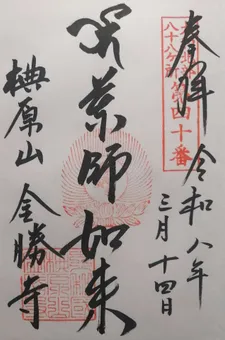 奉拝
令和八年
三月十四日
八十八ヶ所第四十番
薬師如来
椣原山
金勝寺